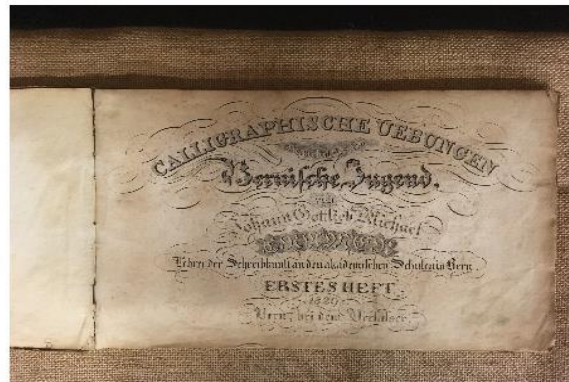 CALLIGRAPHISCHE UEBUNGEN
Bernische Jugend,
von
Johann Gottlieb Michael
Lehrer der Schreibkunst an den akademischen Schulen in Bern.
ERSTES HEFT
Bern, bei dem Verfasser